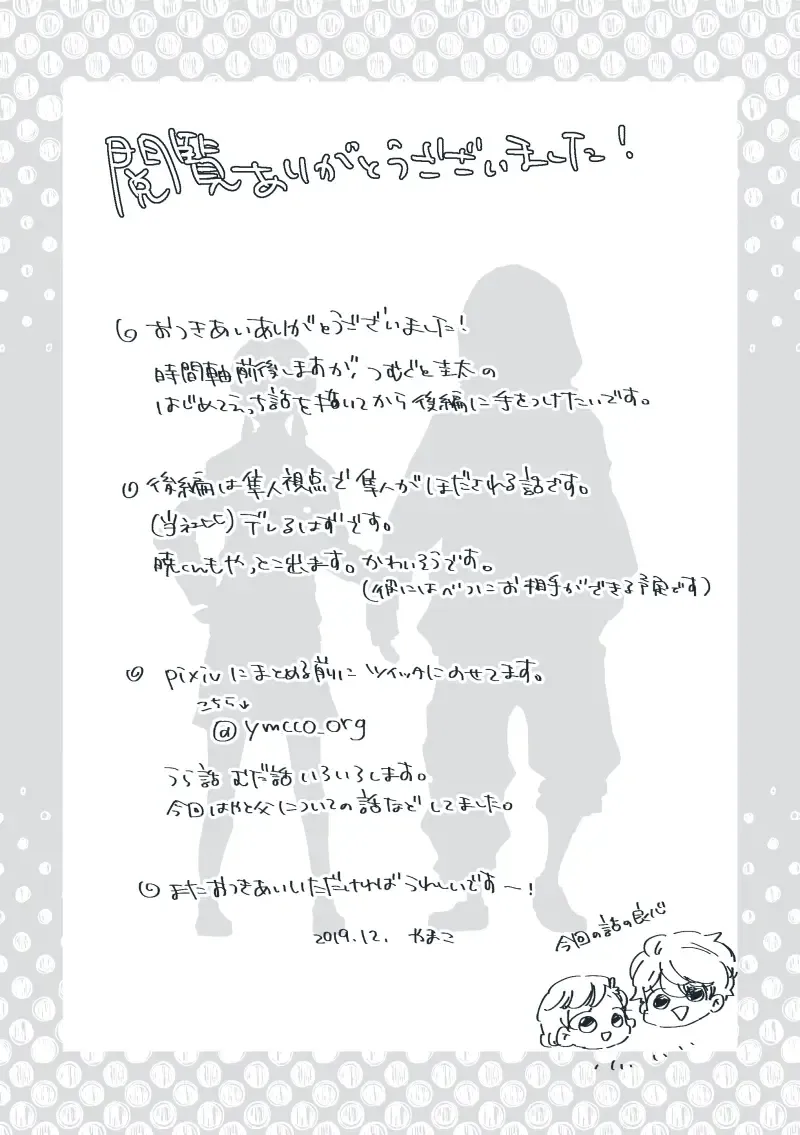 閲覧ありがとうございました!
おつきあいありがとうございました!
時間軸前後しますが、つむぐと圭太の
はじめてえっち話を描いてから後編に手をつけたいです。
後編は隼人視点で隼人がほだされる話です。
(当社比)デレるはずです。
暁くんもやっとこ出ます。かわいそうです。
(彼にはべつにお相手ができる予定です)
pixivにまとめる前にツイッタにのせてます。
こちら↓
@ymcco_org
うら話むだ話いろいろします。
今回はやと父についての話などしてました。
またおつきあいいただければうれしいですー!
2019.12. やまこ
今回の話の良心